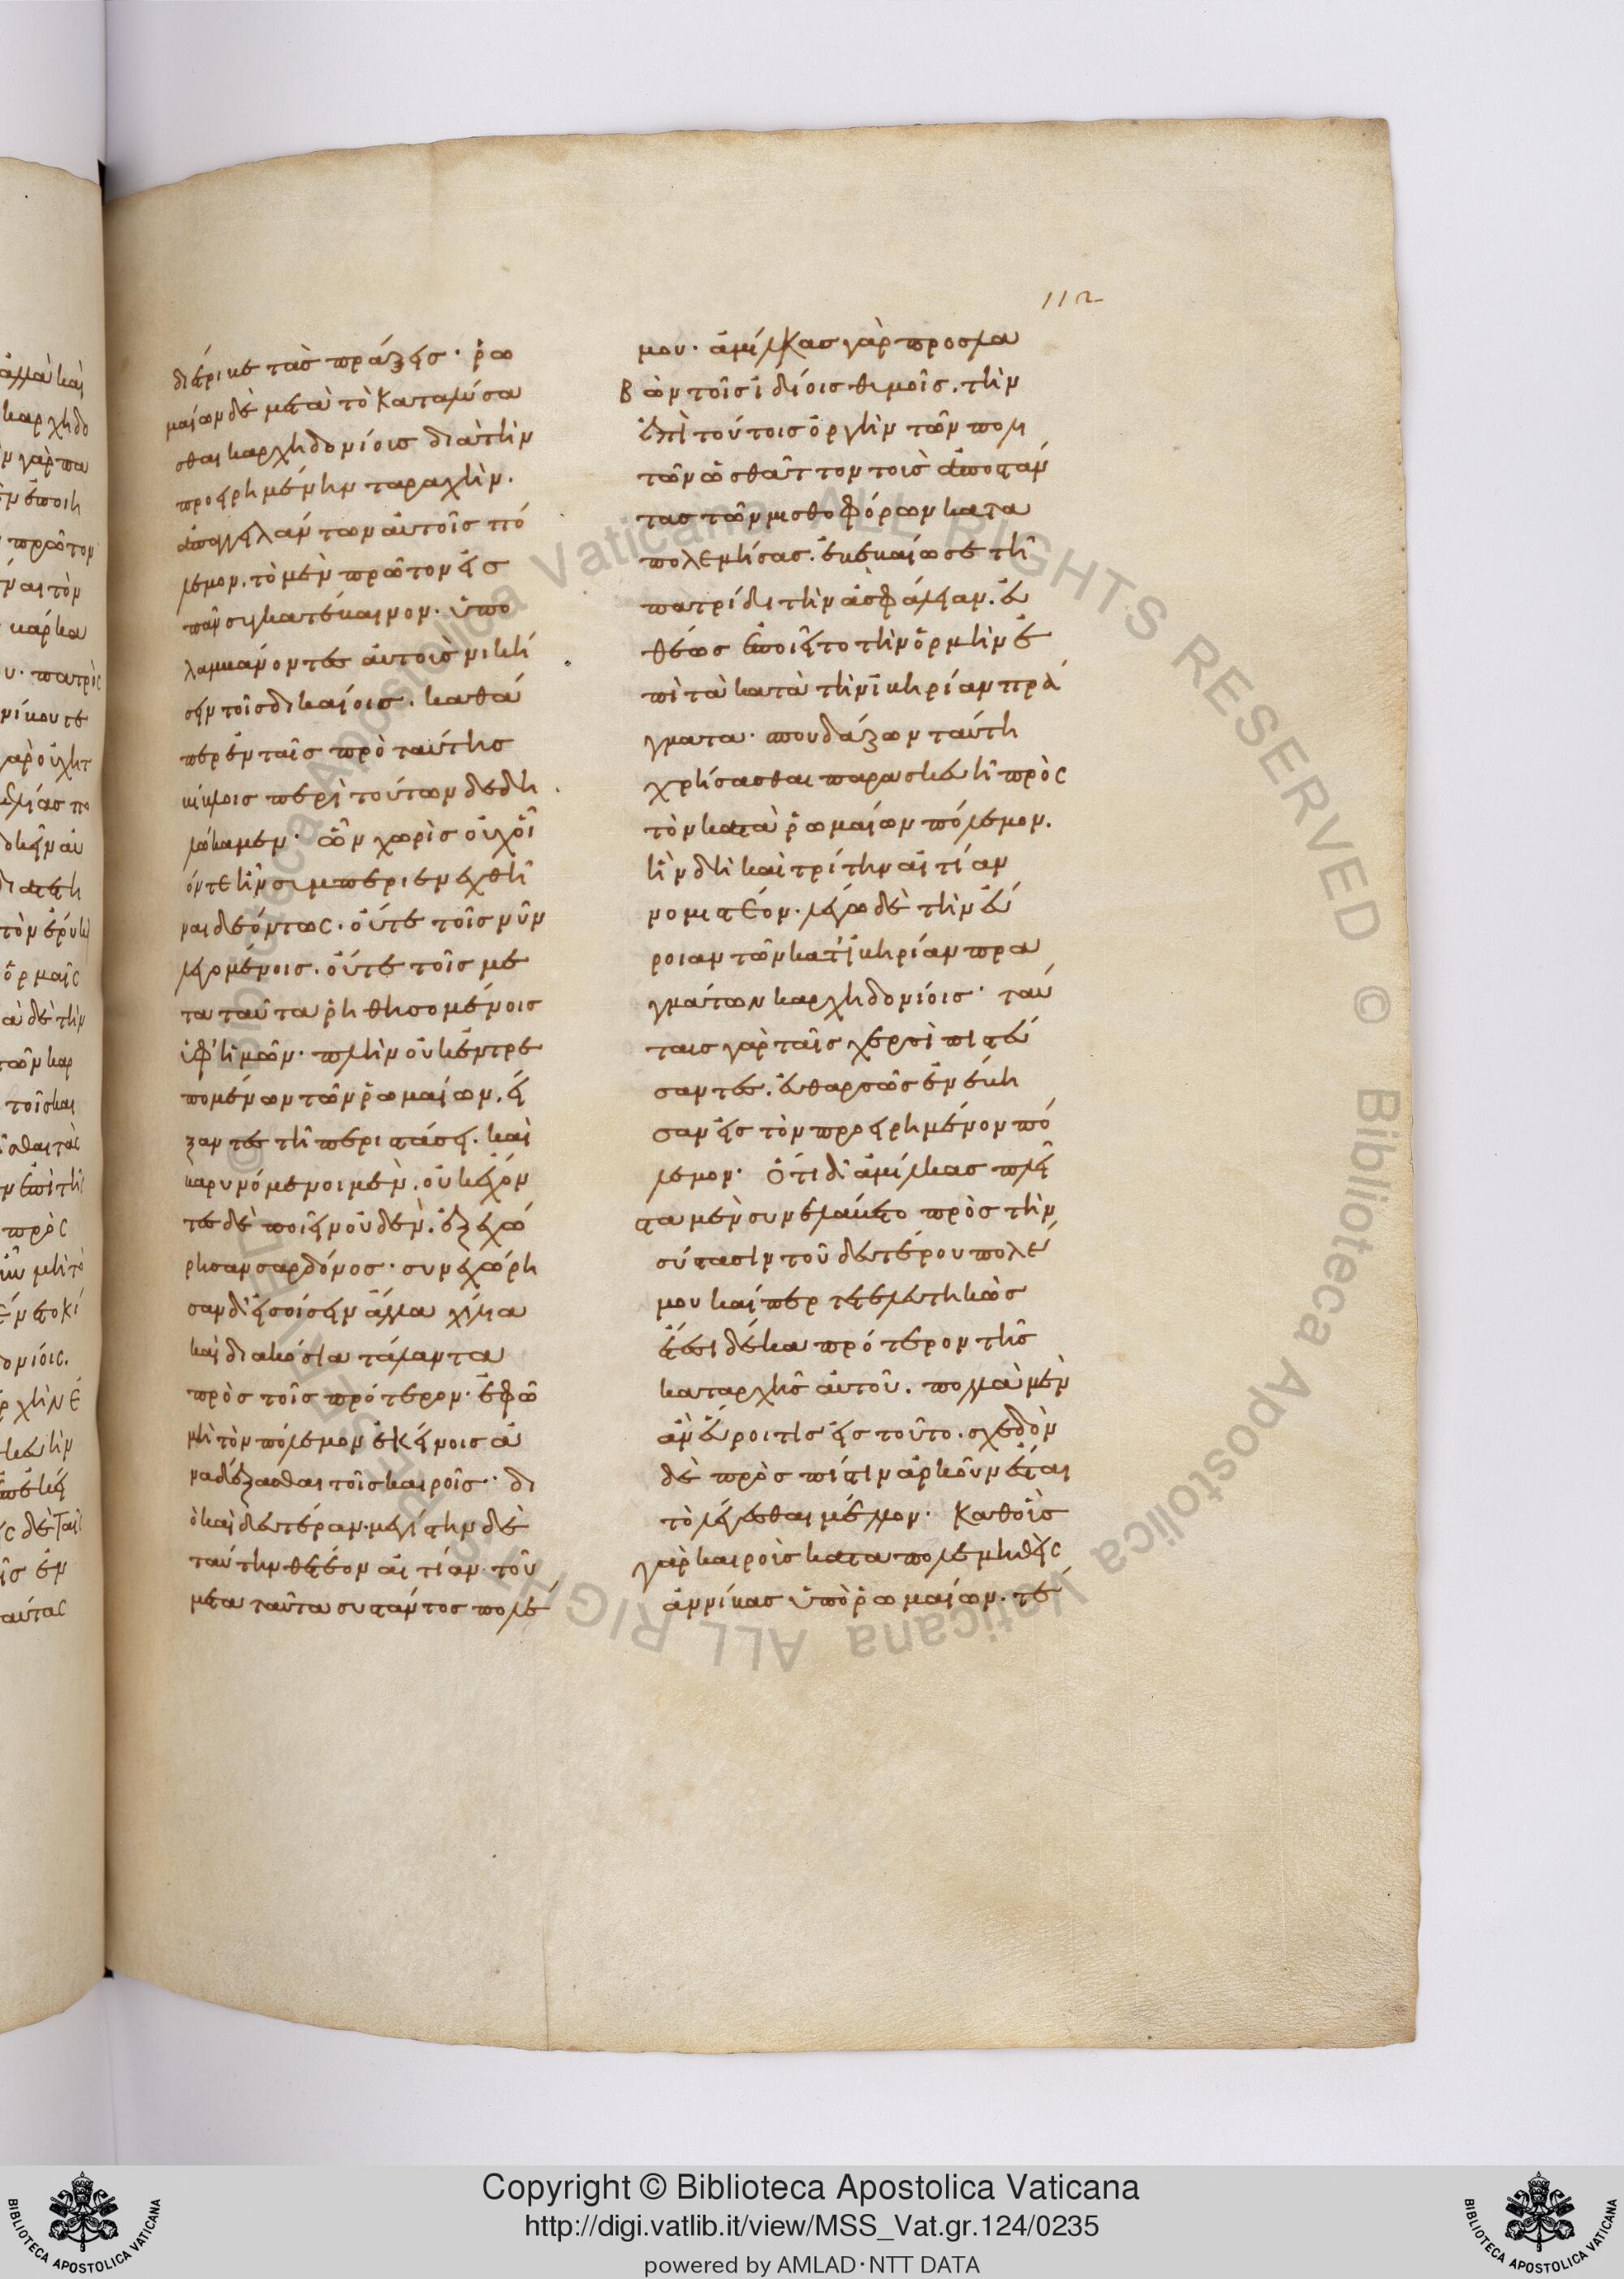 112
διέκρινε τὰς πράξεις· ῥω
μαίων δὲ μετὰ τὸ καταλύσα
σθαι καρχηδονίοις διὰ τὴν
προειρημένην ταραχὴν.
ἀπαγγειλάντων αὐτοῖς πό
λεμον. τὸ μὲν πρῶτον εἰς
πᾶν συγκατέβαινον. ὑπο
λαμβάνοντες αὐτοὺς νική
σειν τοῖς δικαίοις. καθά
περ ἐν ταῖς πρὸ ταύτης
βίβλοις περὶ τούτων δεδη
λώκαμεν· ὧν χωρὶς οὐχ οἷ
όντε ἦν συμπεριενεχθῆ
ναι δεόντως. οὔτε τοῖς νῦν
λεγομένοις. οὔτε τοῖς με
τα ταῦτα ῥηθησομένοις
ὑφ' ἡμῶν. πλὴν οὐκ ἐντρε
πομένων τῶν ῥωμαίων. εἴ
ξαντες τῇ περιστάσει. καὶ
βαρυνόμενοι μὲν. οὐκ ἔχον
τες δὲ ποιεῖν οὐδὲν. ἐξεχώ
ρησαν σαρδόνος· συνεχώρη
σαν δ' εἰσοίσειν ἄλλα χίλια
καὶ διακόσια τάλαντα
πρὸς τοῖς πρότερον. ἐφ' ῷ
μὴ τὸν πόλεμον ἐκείνοις ἀ
ναδέξασθαι τοῖς καιροῖς· δι
ὸ καὶ δευτέραν. μεγίστην δὲ
ταύτην θετέον αἰτίαν τοῦ
μετα ταῦτα συστάντος πολέ
μου· ἀμίλκας γὰρ προσλα
βὼν τοῖς ἰδίοις θυμοῖς. τὴν
ἐπὶ τούτοις ὀργὴν τῶν πολι
τῶν ὡς θᾶττον τοὺς ἀποστάν
τας τῶν μισθοφόρων κατα
πολεμήσας. ἐβεβαίωσε τῇ
πατρίδι τὴν ἀσφάλειαν. εὐ
θέως ἐποιεῖτο τὴν ὁρμὴν ἐ
πὶ τὰ κατὰ τὴν ἰβηρίαν πρά
γματα· σπουδάζων ταύτῃ
χρήσασθαι παρασκευῇ πρὸς
τὸν κατὰ ῥωμαίων πόλεμον.
ἣν δὴ καὶ τρίτην αἰτίαν
νομιστέον. λέγω δὲ τὴν εὔ
ροιαν τῶν κατ' ἰβηρίαν πρα
γμάτων καρχηδονίοις· ταύ
ταις γὰρ ταῖς χερσὶ πιστεύ
σαντες. εὐθαρσῶς ἐνέβη
σαν εἰς τὸν προειρημένον πό
λεμον· ὅτι δ' ἀμίλκας πλεῖ
στα μὲν συνεβάλετο πρὸς τὴν
σύστασιν τοῦ δευτέρου πολέ
μου καίπερ τετελευτηκὼς
ἔτεσι δέκα πρότερον τῆς
καταρχῆς αὐτοῦ. πολλὰ μὲν
ἂν εὕροι τις εἰς τοῦτο. σχεδὸν
δὲ πρὸς πίστιν ἀρκοῦν ἔσται
τὸ λέγεσθαι μέλλον· καθ' οὓς
γὰρ καιροὺς καταπολεμηθεὶς
ἀννίβας ὑπὸ ῥωμαίων. τέ
Copyright © Biblioteca Apostolica Vaticana
http://digi.vatlib.it/view/MSS_Vat.gr.124/0235
powered by AMLAD·NTT DATA